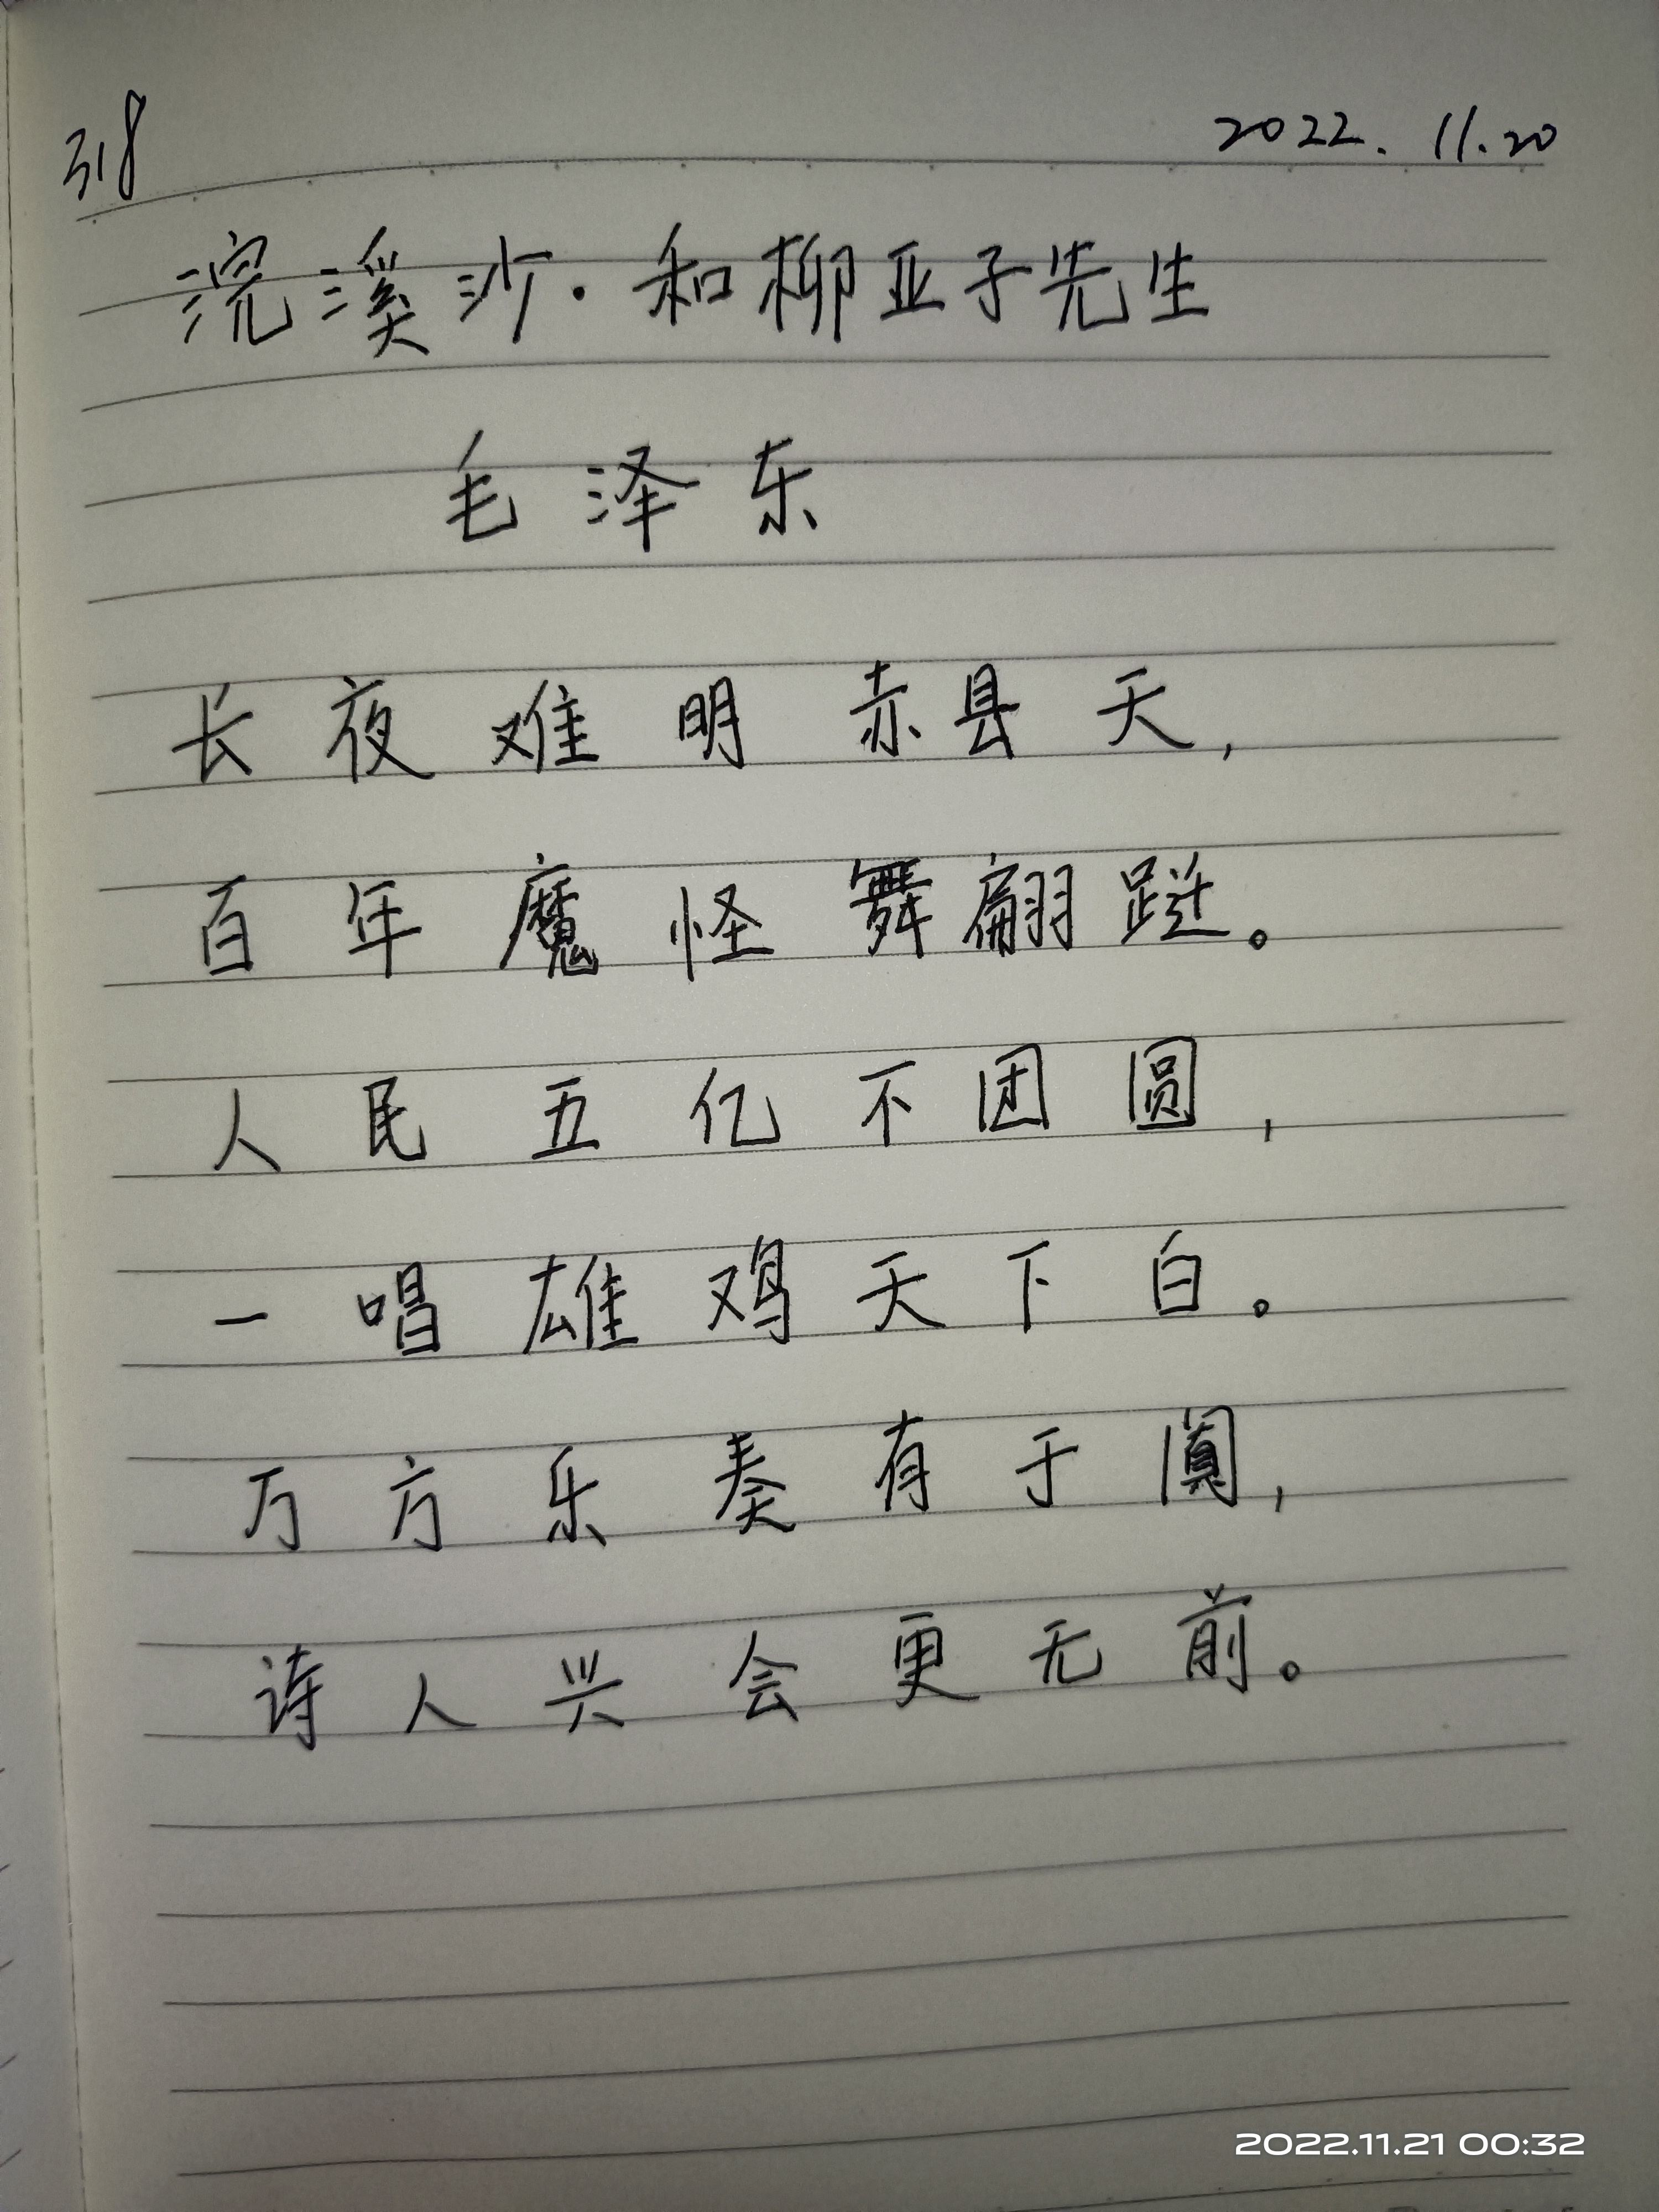 318
2022.11.20
浣溪沙·和柳亚子先生
毛泽东
长夜难明赤县天,
百年魔怪舞翩跹。
人民五亿不团圆,
一唱雄鸡天下白。
万方乐奏有于阗,
诗人兴会更无前。
2022.11.21 00:32